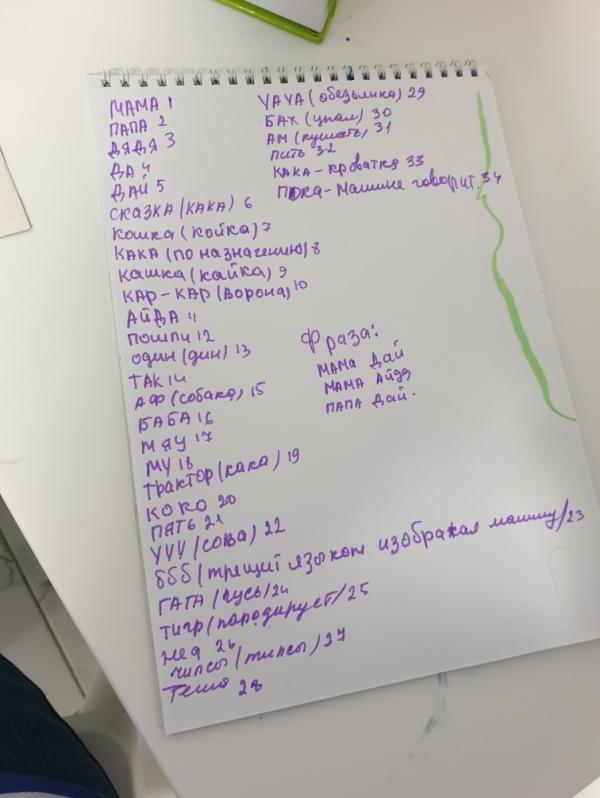 МАМА 1
ПАПА 2
ДЯДЯ 3
ДА 4
ДАЙ 5
СКАЗКА (КАКА) 6
КОШКА (КОЙКА) 7
КАКА (ПО НАЗНАЧЕНИЮ) 8
КАШКА (КАЙКА) 9
КАР-КАР (ВОРОНА) 10
АЙДА 11
ПОШЛИ 12
ОДИН (ДИН) 13
ТАК 14
АФ (СОБАКА) 15
БАБА 16
МЯУ 17
МУ 18
ТРАКТОР (КАКА) 19
КОКО 20
ПЯТЬ 21
УУУ (СОВА) 22
ббб (трещит языком изображая машину) 23
ГАГА (гусь) 24
ТИГР (пародирует) 25
мед 26
чипсы (типсы) 27
Тёма 28
УАУА (обезьянка) 29
БАХ (упал) 30
АМ (кушать) 31
пить 32
КАКА - кроватка 33
ПОКА - машине говорит. 34
Фраза:
МАМА ДАЙ
МАМА АЙДА
ПАПА ДАЙ.